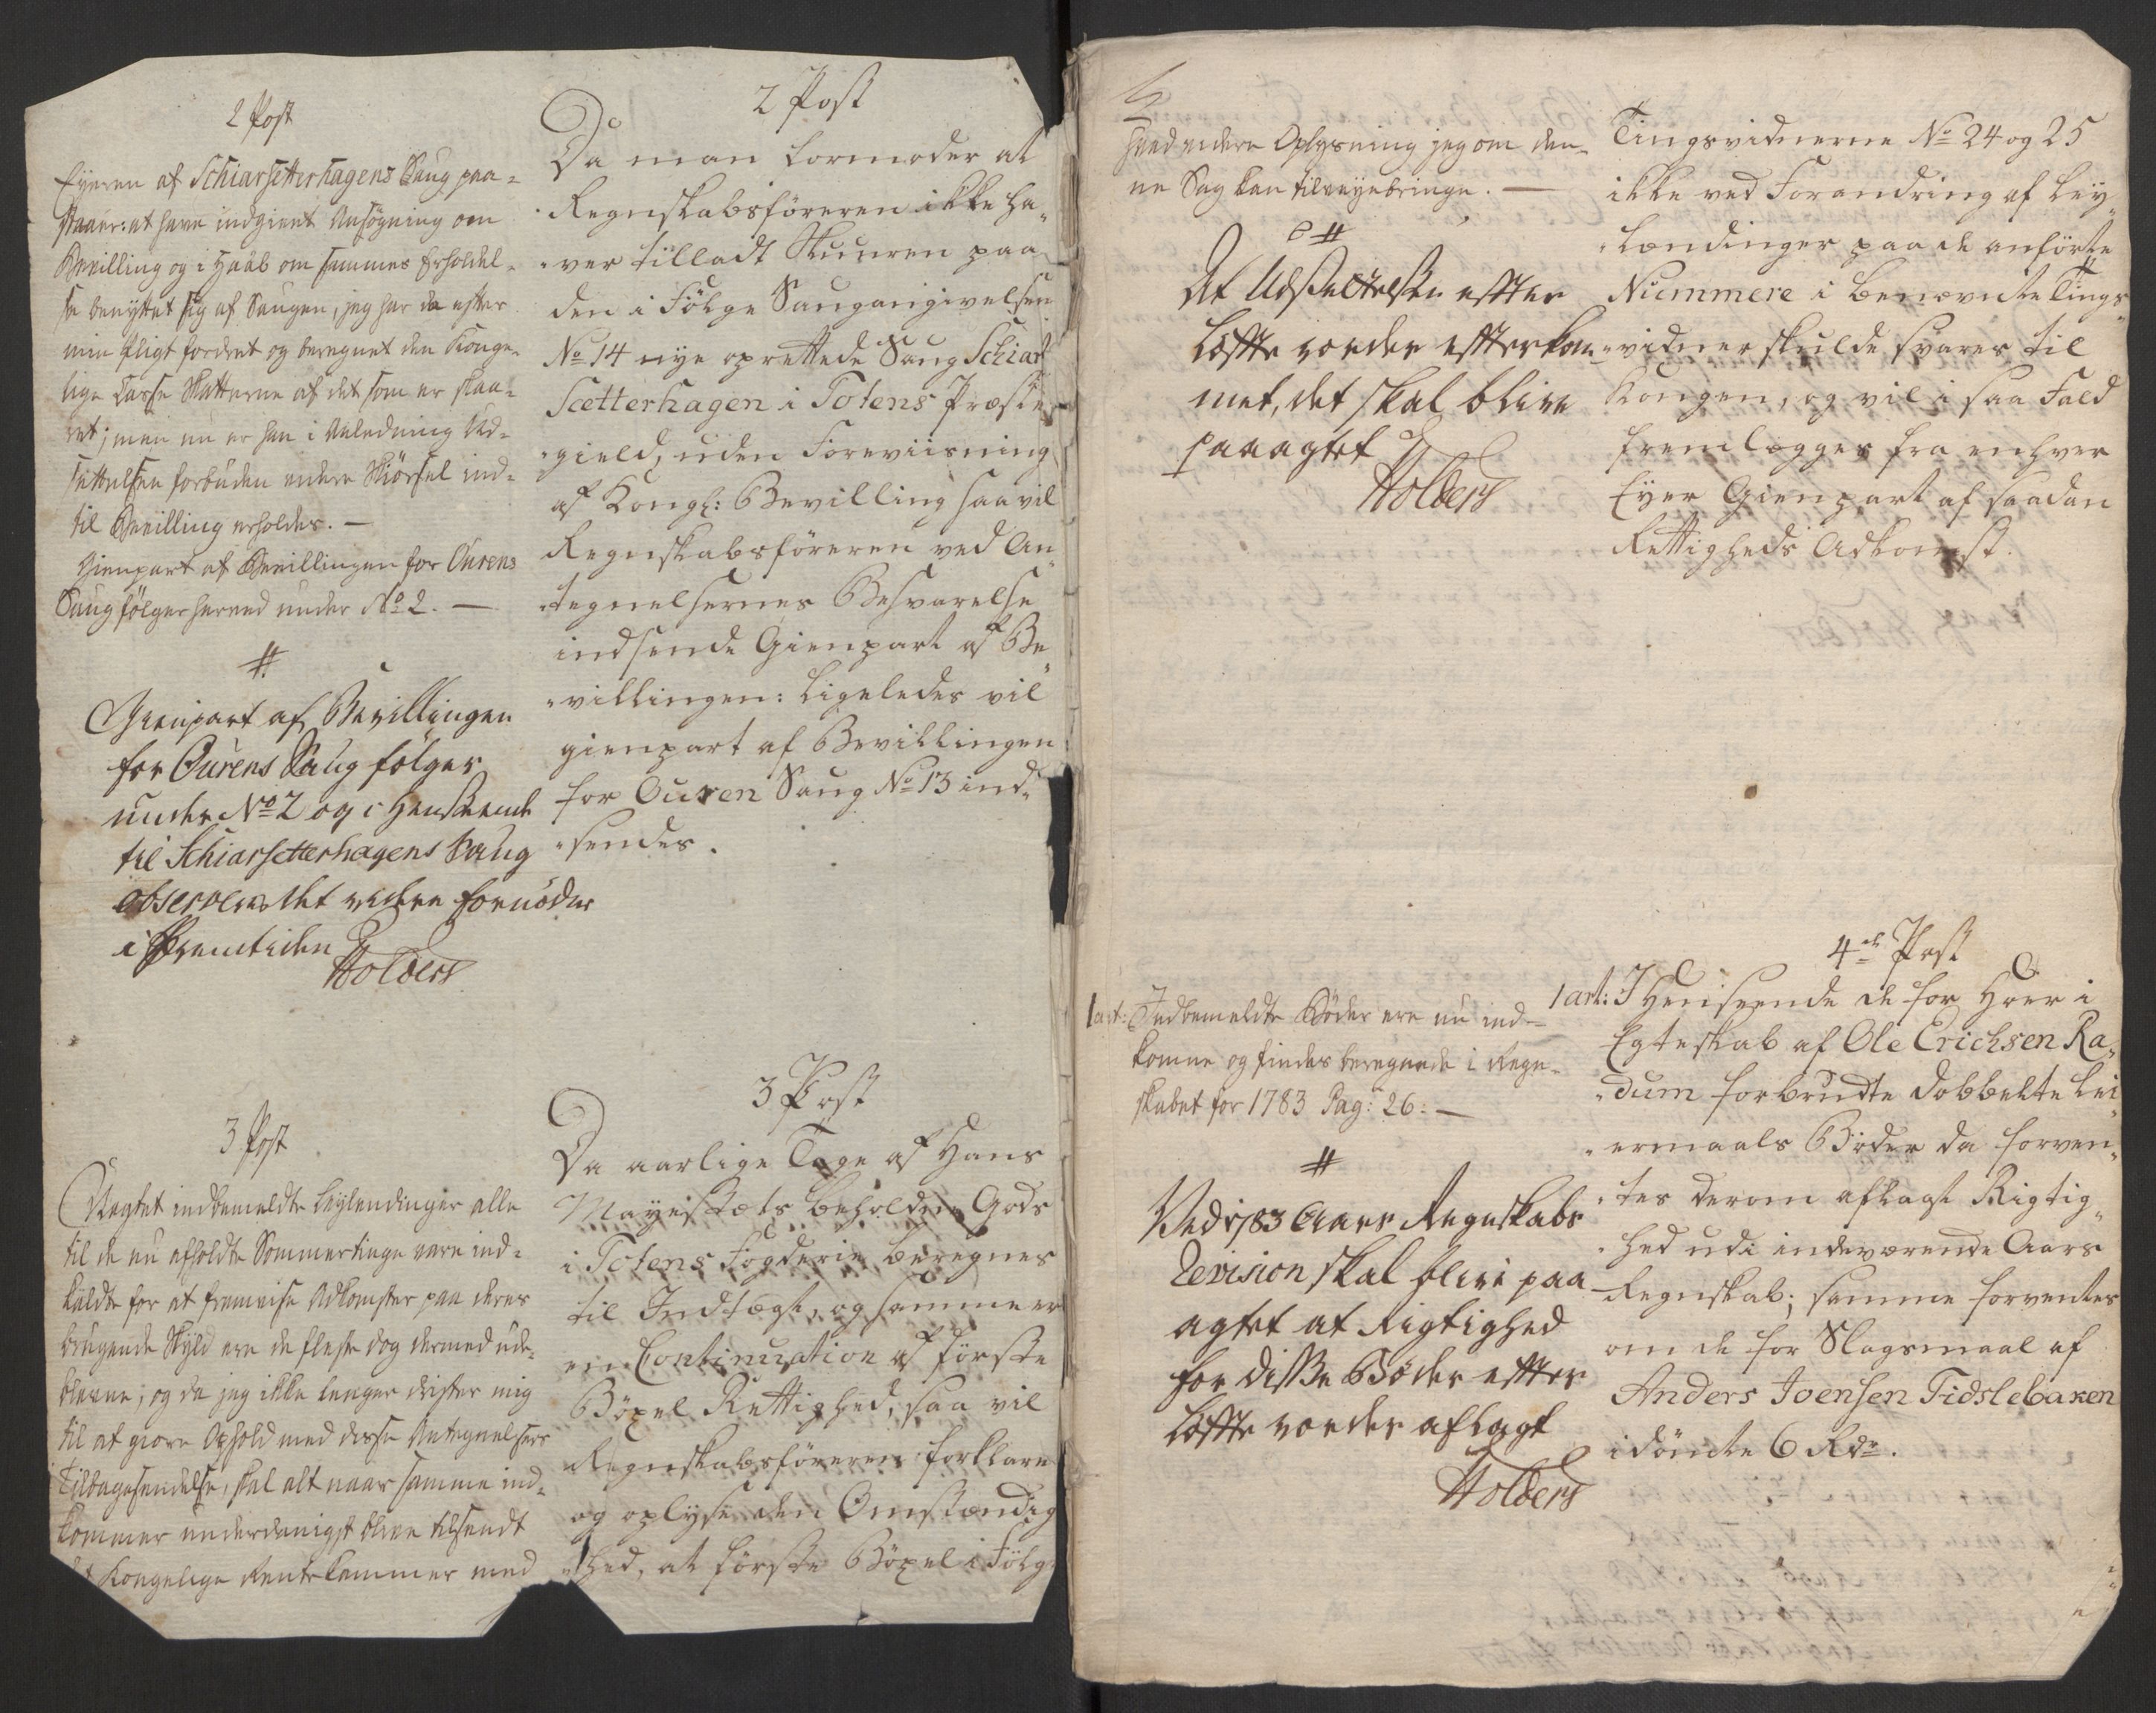 2 Post
Eyeren af Schiarsetterhagens Saug paa-
staaer: at have indgivet Ansøgning om
Bevilling og i Haab om sammes Erholdel-
se benyttet sig af Saugen, jeg har da efter
min Pligt fordret og beregnet den Konge-
lige Casse Skatterne af det som er skaa-
ret; men nu er han i Anledning Ud-
settelsen forbuden videre Skiørsel ind-
til Bevilling erholdes. —
Gienpart af Bevillingen for Ourens
Saug følger herved under No 2. —
#
Gienpart af Bevillingen
for Ourens Saug følger
under No 2 og i Henseende
til Schiarsetterhagens Saug
observeres det videre fornødne
i Fremtiden
Holbers
3 Post
Uagtet indbemeldte Leylendinger alle
til de nu afholdte Sommertinge vare ind-
kaldte for at fremvise Adkomster paa deres
brugende Skyld ere de fleste dog dermed ude-
blevne; og da jeg ikke lenger drister mig
til at giøre Ophold med disse Antegnelsers
Tilbagesendelse, skal alt naar samme ind-
kommer underdanigst blive tilsendt
det Kongelige Rentekammer med
2 Post
Da man formoder at
Regnskabsføreren ikke ha-
ver tilladt Skuuren paa
den i Følge Saugangivelsen
No 14 nye oprettede Saug Schiar
Scetterhagen i Totens Præste-
gield, uden Foreviisning
af Kongl: Bevilling saa vil
Regnskabsføreren ved An-
tegnelsernes Besvarelse
indsende Gienpart af Be-
villingen: ligeledes vil
gienpart af Bevillingen
for Ouren Saug No 13 ind-
sendes.
3 Post
Da aarlige Tage af Hans
Mayestæts beholdne Gods
i Totens Fogderie beregnes
til Indtægt, og samme er
en Continuation af første
Bøxel Rettighed, saa vil
Regnskabsføreren forklare
og oplyse den Omstændig
hed, at første Bøxel i Følge
hvad videre Oplysning jeg om den-
ne Sag kan tilveyebringe. —
#
At Udsættelsen effter
Løffte vorder effterkom-
met, det skal blive
paaagtet
Holbers
1 art: Indbemeldte Bøder ere nu ind-
komne og findes beregnede i Regn-
skabet for 1783 Pag: 26: —
#
Ved 1783 Aars Regnskabs
Revision skal blive paa
agtet at Rigtighed
for disse Bøder effter
Løffte vorder aflagt
Holbers
Tingsvidnerne No 24 og 25
ikke ved Forandring af Ley-
lændinger paa de anførte
Nummere i benævnte Tings-
vidner skulde svares til
Kongen, og vil i saa Fald
fremlægges fra enhver
Eyer Gienpart af saadan
Rettigheds Adkomst.
4de Post
1 art: I Henseende de for Hoer i
Egteskab af Ole Erichsen Ra-
dum forbrudte dobbelte Lei-
ermaals Bøder da forven-
tes derom aflagt Rigtig-
hed udi indeværende Aars
Regnskab; samme forventes
om de for Slagsmaal af
Anders Joensen Tidslebaken
idømte 6 Rdr.